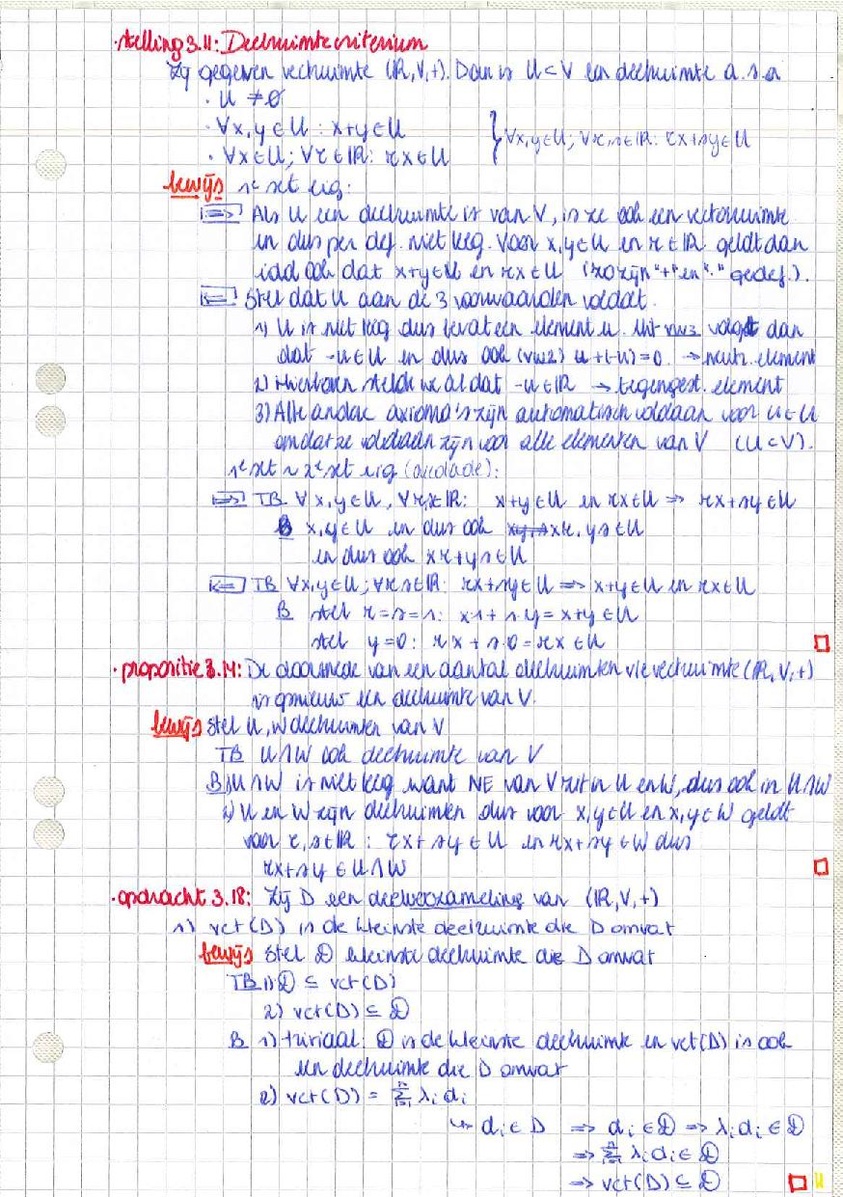 · stelling 3.11: Deelruimtecriterium
Zij gegeven vectruimte (ℝ,V,+). Dan is U⊂V een deelruimte a.s.a
· U ≠ ∅
· ∀x,y∈U : x+y∈U
· ∀x∈U; ∀r∈ℝ: rx∈U } ∀x,y∈U; ∀r,s∈ℝ: rx+sy∈U
bewijs 1e set eig:
=> Als U een deelruimte is van V, is ze ook een vectorruimte
en dus per def. niet leeg. Voor x,y∈U en r∈ℝ geldt dan
idd ook dat x+y∈U en rx∈U (zo zijn "+" en "." gedef.).
<= Stel dat U aan de 3 voorwaarden voldoet.
1) U is niet leeg dus bevat een element u. Uit vw3 volgt dan
dat -u∈U en dus ook (vw2) u+(-u)=0. → neutr. element
2) Hierboven stelde we al dat -u∈ℝ → tegengest. element
3) Alle andere axioma's zijn automatisch voldaan voor u∈U
omdat ze voldaan zijn voor alle elementen van V (U⊂V).
1e set ~ 2e set eig (accolade):
=> TB ∀x,y∈U, ∀r,s∈ℝ: x+y∈U en rx∈U => rx+sy∈U
B x,y∈U en dus ook xr, ys∈U
en dus ook xr+ys∈U
<= TB ∀x,y∈U; ∀r,s∈ℝ: rx+sy∈U => x+y∈U en rx∈U
B stel r=s=1: x1+1.y=x+y∈U
stel y=0: rx+s.0=rx∈U
· propositie 3.14: De doorsnede van een aantal deelruimten v/e vectruimte (ℝ,V,+)
is opnieuw een deelruimte van V.
bewijs Stel U,W deelruimten van V
TB U∩W ook deelruimte van V
B 1) U∩W is niet leeg want NE van V zit in U en W, dus ook in U∩W
2) U en W zijn deelruimten dus voor x,y∈U en x,y∈W geldt
voor r,s∈ℝ : rx+sy∈U en rx+sy∈W dus
rx+sy∈U∩W
· opdracht 3.18: Zij D een deelverzameling van (ℝ,V,+)
1) vct(D) is de kleinste deelruimte die D omvat
bewijs Stel 𝔻 kleinste deelruimte die D omvat
TB 1) 𝔻 ⊆ vct(D)
2) vct(D) ⊆ 𝔻
B 1) triviaal: 𝔻 is de kleinste deelruimte en vct(D) is ook
een deelruimte die D omvat
2) vct(D) = Σⁿᵢ₌₁ λᵢdᵢ
↳ dᵢ∈D => dᵢ∈𝔻 => λᵢdᵢ∈𝔻
=> Σⁿᵢ₌₁ λᵢdᵢ∈𝔻
=> vct(D)⊆𝔻